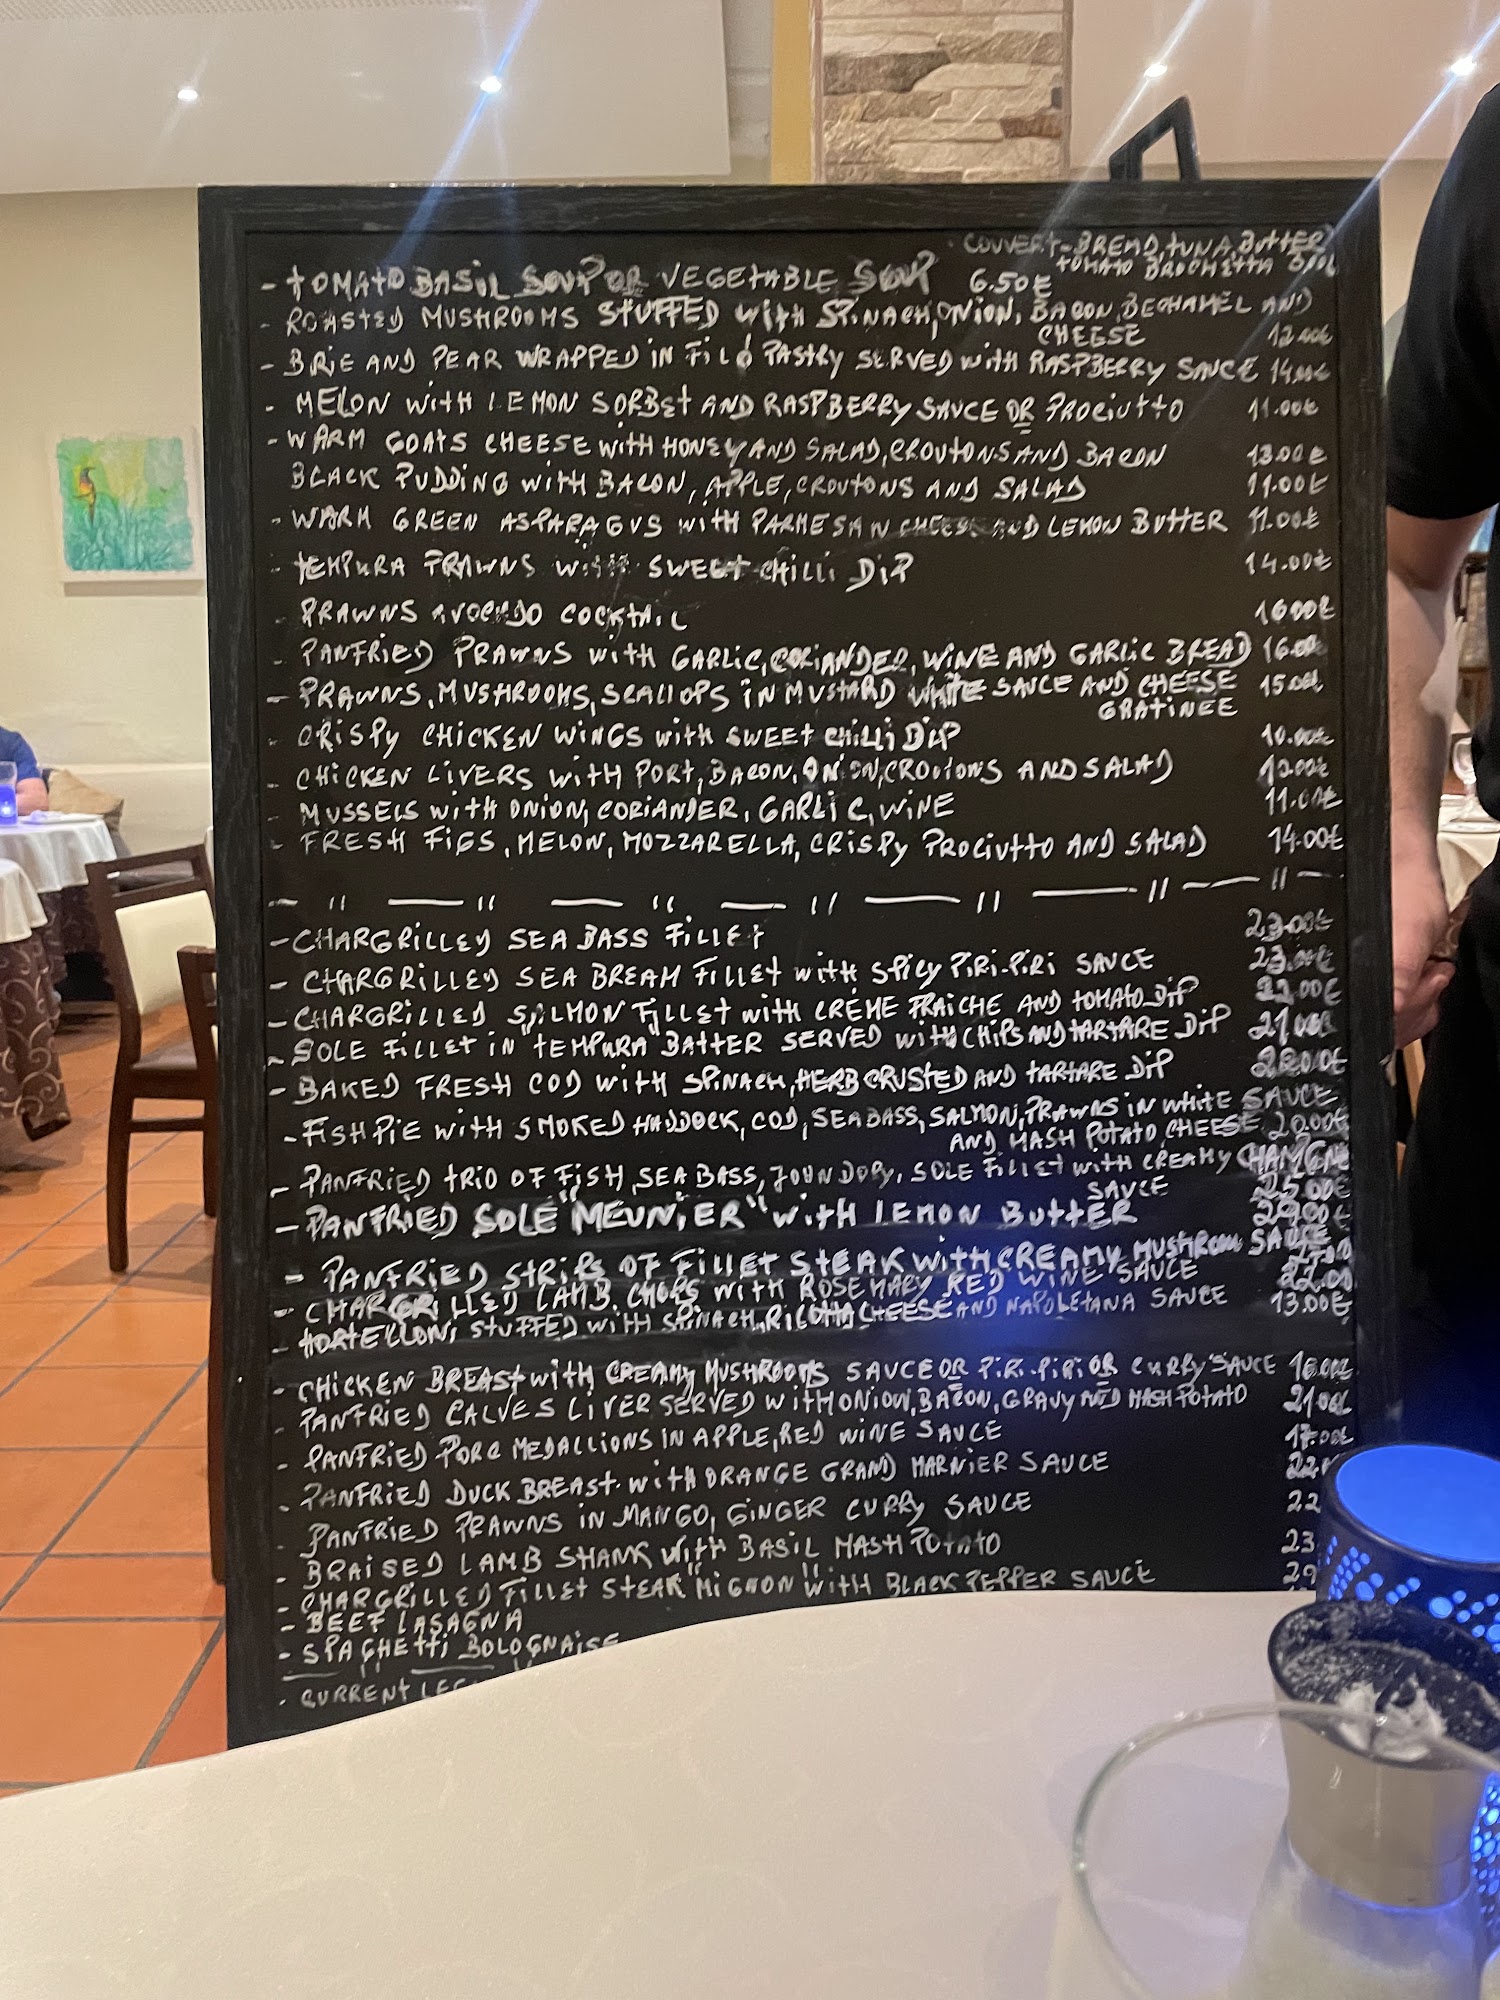 COUVERT-BREAD, TUNA, BUTTER
TOMATO BROCHETTA
- TOMATO BASIL SOUP OR VEGETABLE SOUP 6.50€
- ROASTED MUSHROOMS STUFFED WITH SPINACH, ONION, BACON, BECHAMEL AND
CHEESE 12.00€
- BRIE AND PEAR WRAPPED IN FILO PASTRY SERVED WITH RASPBERRY SAUCE 14.00€
- MELON WITH LEMON SORBET AND RASPBERRY SAUCE OR PROCIUTTO 11.00€
- WARM GOATS CHEESE WITH HONEY AND SALAD, CROUTONS AND BACON 13.00€
BLACK PUDDING WITH BACON, APPLE, CROUTONS AND SALAD 11.00€
- WARM GREEN ASPARAGUS WITH PARMESAN CHEESE AND LEMON BUTTER 11.00€
- TEMPURA PRAWNS WITH SWEET CHILLI DIP 14.00€
- PRAWNS AVOCADO COCKTAIL 16.00€
- PANFRIED PRAWNS WITH GARLIC, CORIANDER, WINE AND GARLIC BREAD 16.00
- PRAWNS, MUSHROOMS, SCALLOPS IN MUSTARD WHITE SAUCE AND CHEESE 15.00€
GRATINEE
- CRISPY CHICKEN WINGS WITH SWEET CHILLI DIP 10.00€
- CHICKEN LIVERS WITH PORT, BACON, ONION, CROUTONS AND SALAD 12.00€
MUSSELS WITH ONION, CORIANDER, GARLIC, WINE 11.00€
- FRESH FIGS, MELON, MOZZARELLA, CRISPY PROCIUTTO AND SALAD 14.00€
— 11 — 11 — 11 — 11 — 11 — 11 — 11 —
- CHARGRILLED SEA BASS FILLET 23.00€
- CHARGRILLED SEA BREAM FILLET WITH SPICY PIRI-PIRI SAUCE 23.00€
- CHARGRILLED SALMON FILLET WITH CRÈME FRAICHE AND TOMATO DIP 22.00€
- SOLE FILLET IN "TEMPURA" BATTER SERVED WITH CHIPS AND TARTARE DIP 21.00€
- BAKED FRESH COD WITH SPINACH, HERB CRUSTED AND TARTARE DIP
- FISH PIE WITH SMOKED HADDOCK, COD, SEA BASS, SALMON, PRAWNS IN WHITE SAUCE
AND MASH POTATO, CHEESE 20.00€
- PANFRIED TRIO OF FISH, SEA BASS, JOHN DORY, SOLE FILLET WITH CREAMY
SAUCE 25.00€
- PANFRIED SOLE "MEUNIER" WITH LEMON BUTTER
- PANFRIED STRIPS OF FILLET STEAK WITH CREAMY MUSHROOM SAUCE
- CHARGRILLED LAMB CHOPS WITH ROSEMARY RED WINE SAUCE 22.00
- TORTELLONI STUFFED WITH SPINACH, RICOTTA CHEESE AND NAPOLETANA SAUCE 13.00€
- CHICKEN BREAST WITH CREAMY MUSHROOMS SAUCE OR PIRI-PIRI OR CURRY SAUCE 16.00€
- PANFRIED CALVES LIVER SERVED WITH ONION, BACON, GRAVY AND MASH POTATO 21.00€
- PANFRIED PORC MEDALLIONS IN APPLE, RED WINE SAUCE 17.00€
- PANFRIED DUCK BREAST WITH ORANGE GRAND MARNIER SAUCE 22
- PANFRIED PRAWNS IN MANGO, GINGER CURRY SAUCE 22
- BRAISED LAMB SHANK WITH BASIL MASH POTATO 23
- CHARGRILLED FILLET STEAK "MIGNON" WITH BLACK PEPPER SAUCE 29
- BEEF LASAGNA
- SPAGHETTI BOLOGNAISE
— 11 — 11
- CURRENT